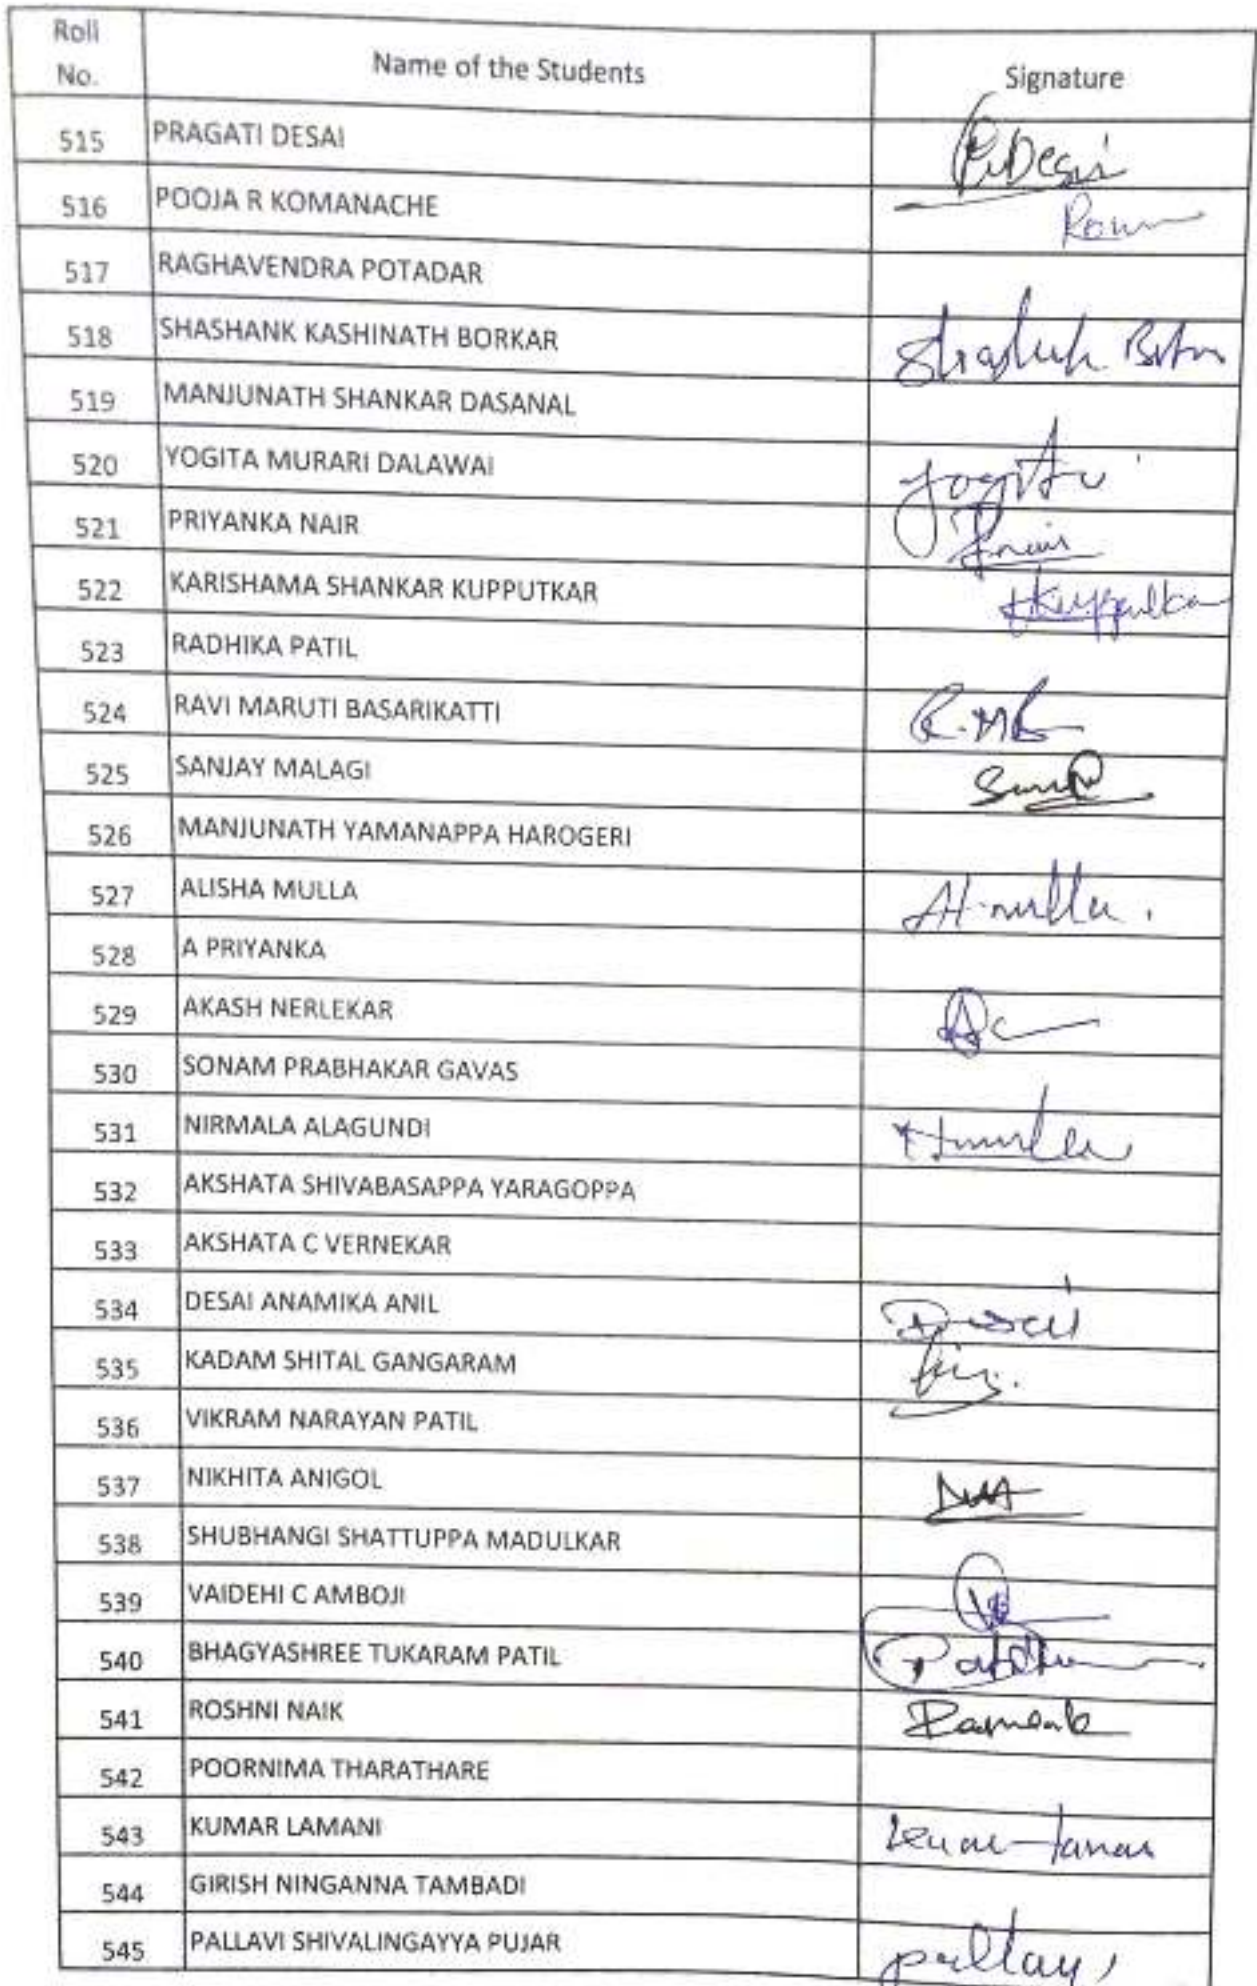 Roll No. Name of the Students Signature
515 PRAGATI DESAI P.Desai
516 POOJA R KOMANACHE
517 RAGHAVENDRA POTADAR
518 SHASHANK KASHINATH BORKAR
519 MANJUNATH SHANKAR DASANAL
520 YOGITA MURARI DALAWAI Yogita
521 PRIYANKA NAIR
522 KARISHAMA SHANKAR KUPPUTKAR
523 RADHIKA PATIL
524 RAVI MARUTI BASARIKATTI R.MB
525 SANJAY MALAGI
526 MANJUNATH YAMANAPPA HAROGERI
527 ALISHA MULLA
528 A PRIYANKA
529 AKASH NERLEKAR
530 SONAM PRABHAKAR GAVAS
531 NIRMALA ALAGUNDI
532 AKSHATA SHIVABASAPPA YARAGOPPA
533 AKSHATA C VERNEKAR
534 DESAI ANAMIKA ANIL
535 KADAM SHITAL GANGARAM
536 VIKRAM NARAYAN PATIL
537 NIKHITA ANIGOL
538 SHUBHANGI SHATTUPPA MADULKAR
539 VAIDEHI C AMBOJI
540 BHAGYASHREE TUKARAM PATIL
541 ROSHNI NAIK
542 POORNIMA THARATHARE
543 KUMAR LAMANI
544 GIRISH NINGANNA TAMBADI
545 PALLAVI SHIVALINGAYYA PUJAR pallavi